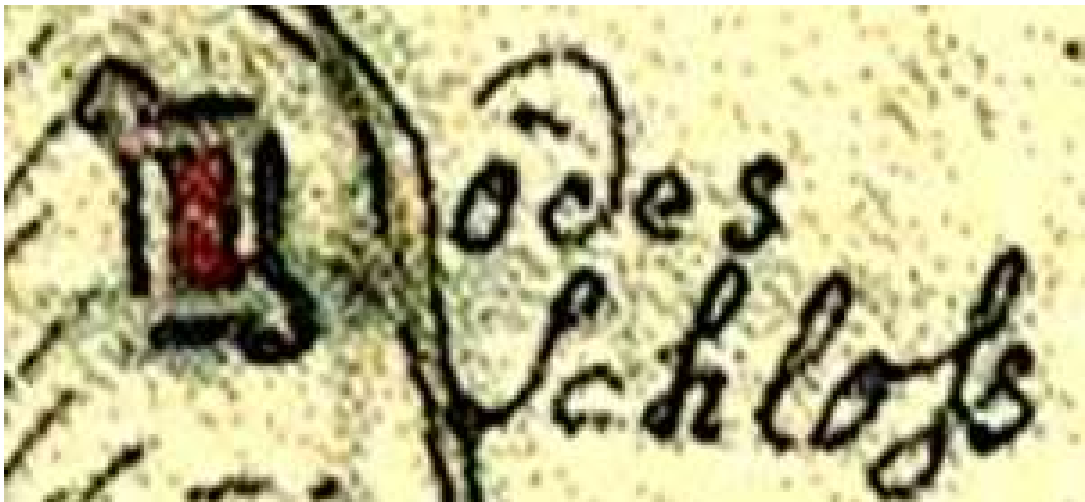 odes
Schloſs